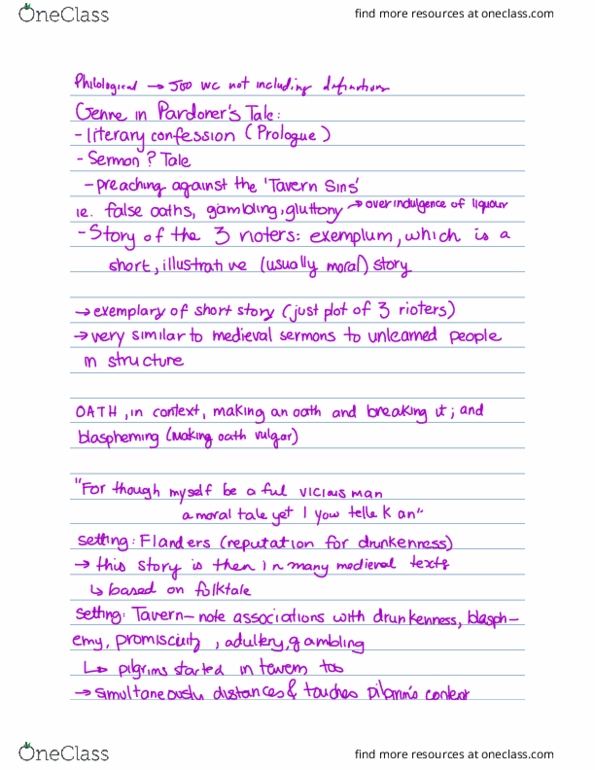 OneClass
find more resources at oneclass.com
Philological → 500 wc not including definitions
Genre in Pardoner's Tale:
- literary confession (Prologue)
- Sermon? Tale
- preaching against the 'Tavern Sins'
ie. false oaths, gambling, gluttony → overindulgence of liquour
- Story of the 3 rioters: exemplum, which is a
short, illustrative (usually moral) story
→ exemplary of short story (just plot of 3 rioters)
→ very similar to medieval sermons to unlearned people
in structure
OATH, in context, making an oath and breaking it; and
blaspheming (making oath vulgar)
"For though myself be a ful vicious man
a moral tale yet I yow telle kan"
Setting: Flanders (reputation for drunkenness)
→ this story is then in many medieval texts
↳ based on folktale
Setting: Tavern - note associations with drunkenness, blasph-
emy, promiscuity, adultery, gambling
↳ pilgrims started in tavern too
→ simultaneously distances & touches pilgrim's context
OneClass
find more resources at oneclass.com